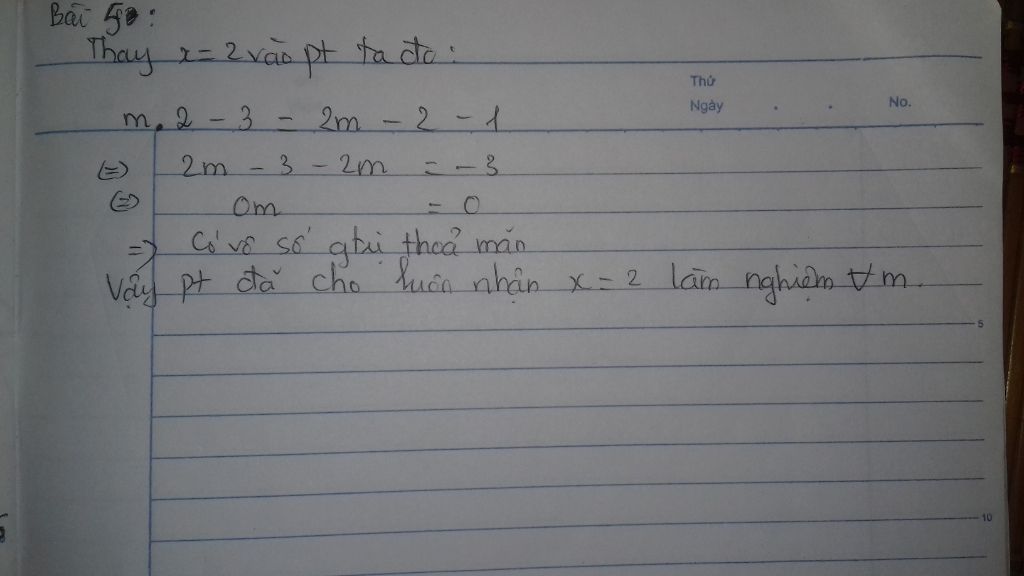 Bài 5:
Thay x = 2 vào pt ta đc:
Thứ
Ngày . . No.
m . 2 - 3 = 2m - 2 - 1
(=) 2m - 3 - 2m = - 3
(=) 0m = 0
=) Có vô số gtrị thoả mãn
Vậy pt đã cho luôn nhận x = 2 làm nghiệm ∀ m.
5
10